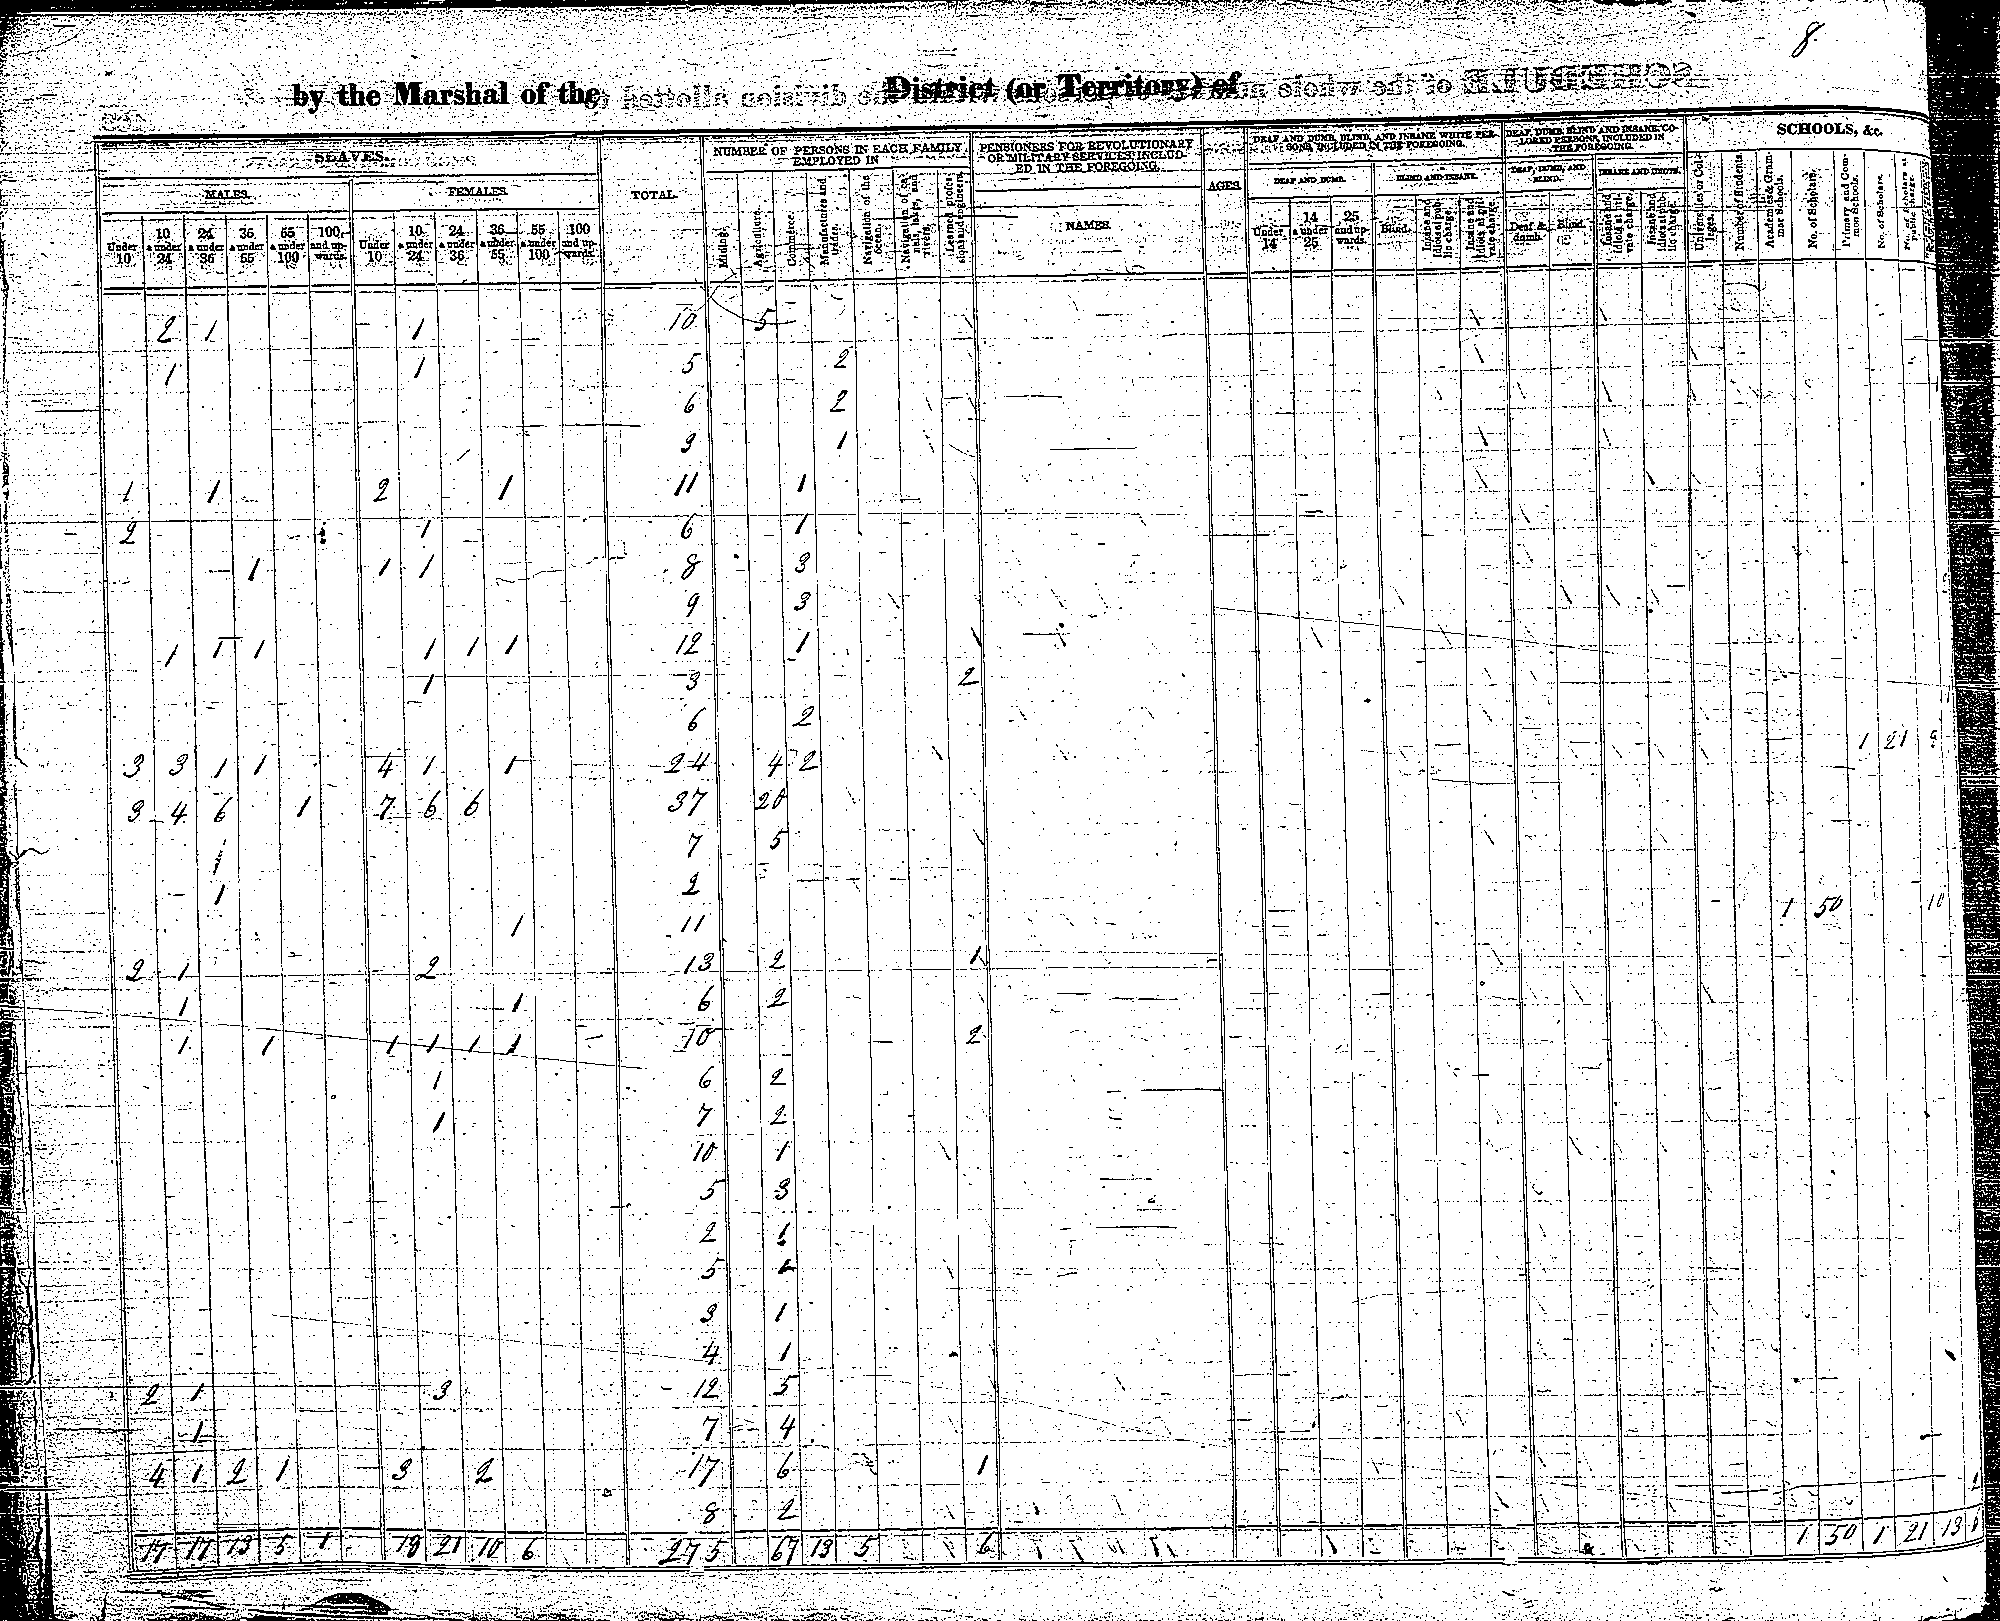 8.
by the Marshal of the District (or Territory) of
SLAVES.
MALES.
FEMALES.
Under 10
10 & under 24
24 & under 36
36 & under 55
55 & under 100
100 and upwards
Under 10
10 & under 24
24 & under 36
36 & under 55
55 & under 100
100 and upwards
TOTAL
NUMBER OF PERSONS IN EACH FAMILY EMPLOYED IN
Mining.
Agriculture.
Commerce.
Manufactures and trades.
Navigation of the ocean.
Navigation of canals, lakes, and rivers.
Learned profes'ns and engineers.
PENSIONERS FOR REVOLUTIONARY OR MILITARY SERVICES, INCLUDED IN THE FOREGOING.
NAMES.
AGES
DEAF AND DUMB, BLIND, AND INSANE WHITE PERSONS, INCLUDED IN THE FOREGOING.
DEAF AND DUMB.
Under 14
14 & under 25
25 and upwards.
BLIND AND INSANE.
Blind.
Insane and idiots at public charge.
Insane and idiots at private charge.
DEAF, DUMB, BLIND AND INSANE COLORED PERSONS, INCLUDED IN THE FOREGOING.
DEAF, DUMB, AND BLIND.
Deaf & dumb.
Blind.
INSANE AND IDIOTS.
Insane and idiots at private charge.
Insane and idiots at public charge.
SCHOOLS, &c.
Universities or Colleges.
Number of Students.
Academies & Grammar Schools.
No. of Scholars.
Primary and Common Schools.
No. of Scholars.
No. of Scholars at public charge.
2 1 1 10 5
1 1 5 2
6 2
9 1
1 1 2 1 11 1
2 1 6 1
1 1 1 8 3
9 3
1 1 1 1 1 1 12 1
1 3 2
6 2
3 3 1 1 4 1 1 24 4 2 1 21
3 4 6 1 7 6 6 37 20
1 7 5
1 2 1 50 10
1 11
2 1 2 13 2 1
1 1 6 2
1 1 1 1 1 1 10 2
1 6 2
1 7 2
10 1
5 3
2 1
5
3 1
4 1
2 1 3 12 5
1 7 4
4 1 2 1 3 2 17 6 1
8 2
17 17 13 5 1 18 21 10 6 275 67 13 5 6 1 50 1 21 13